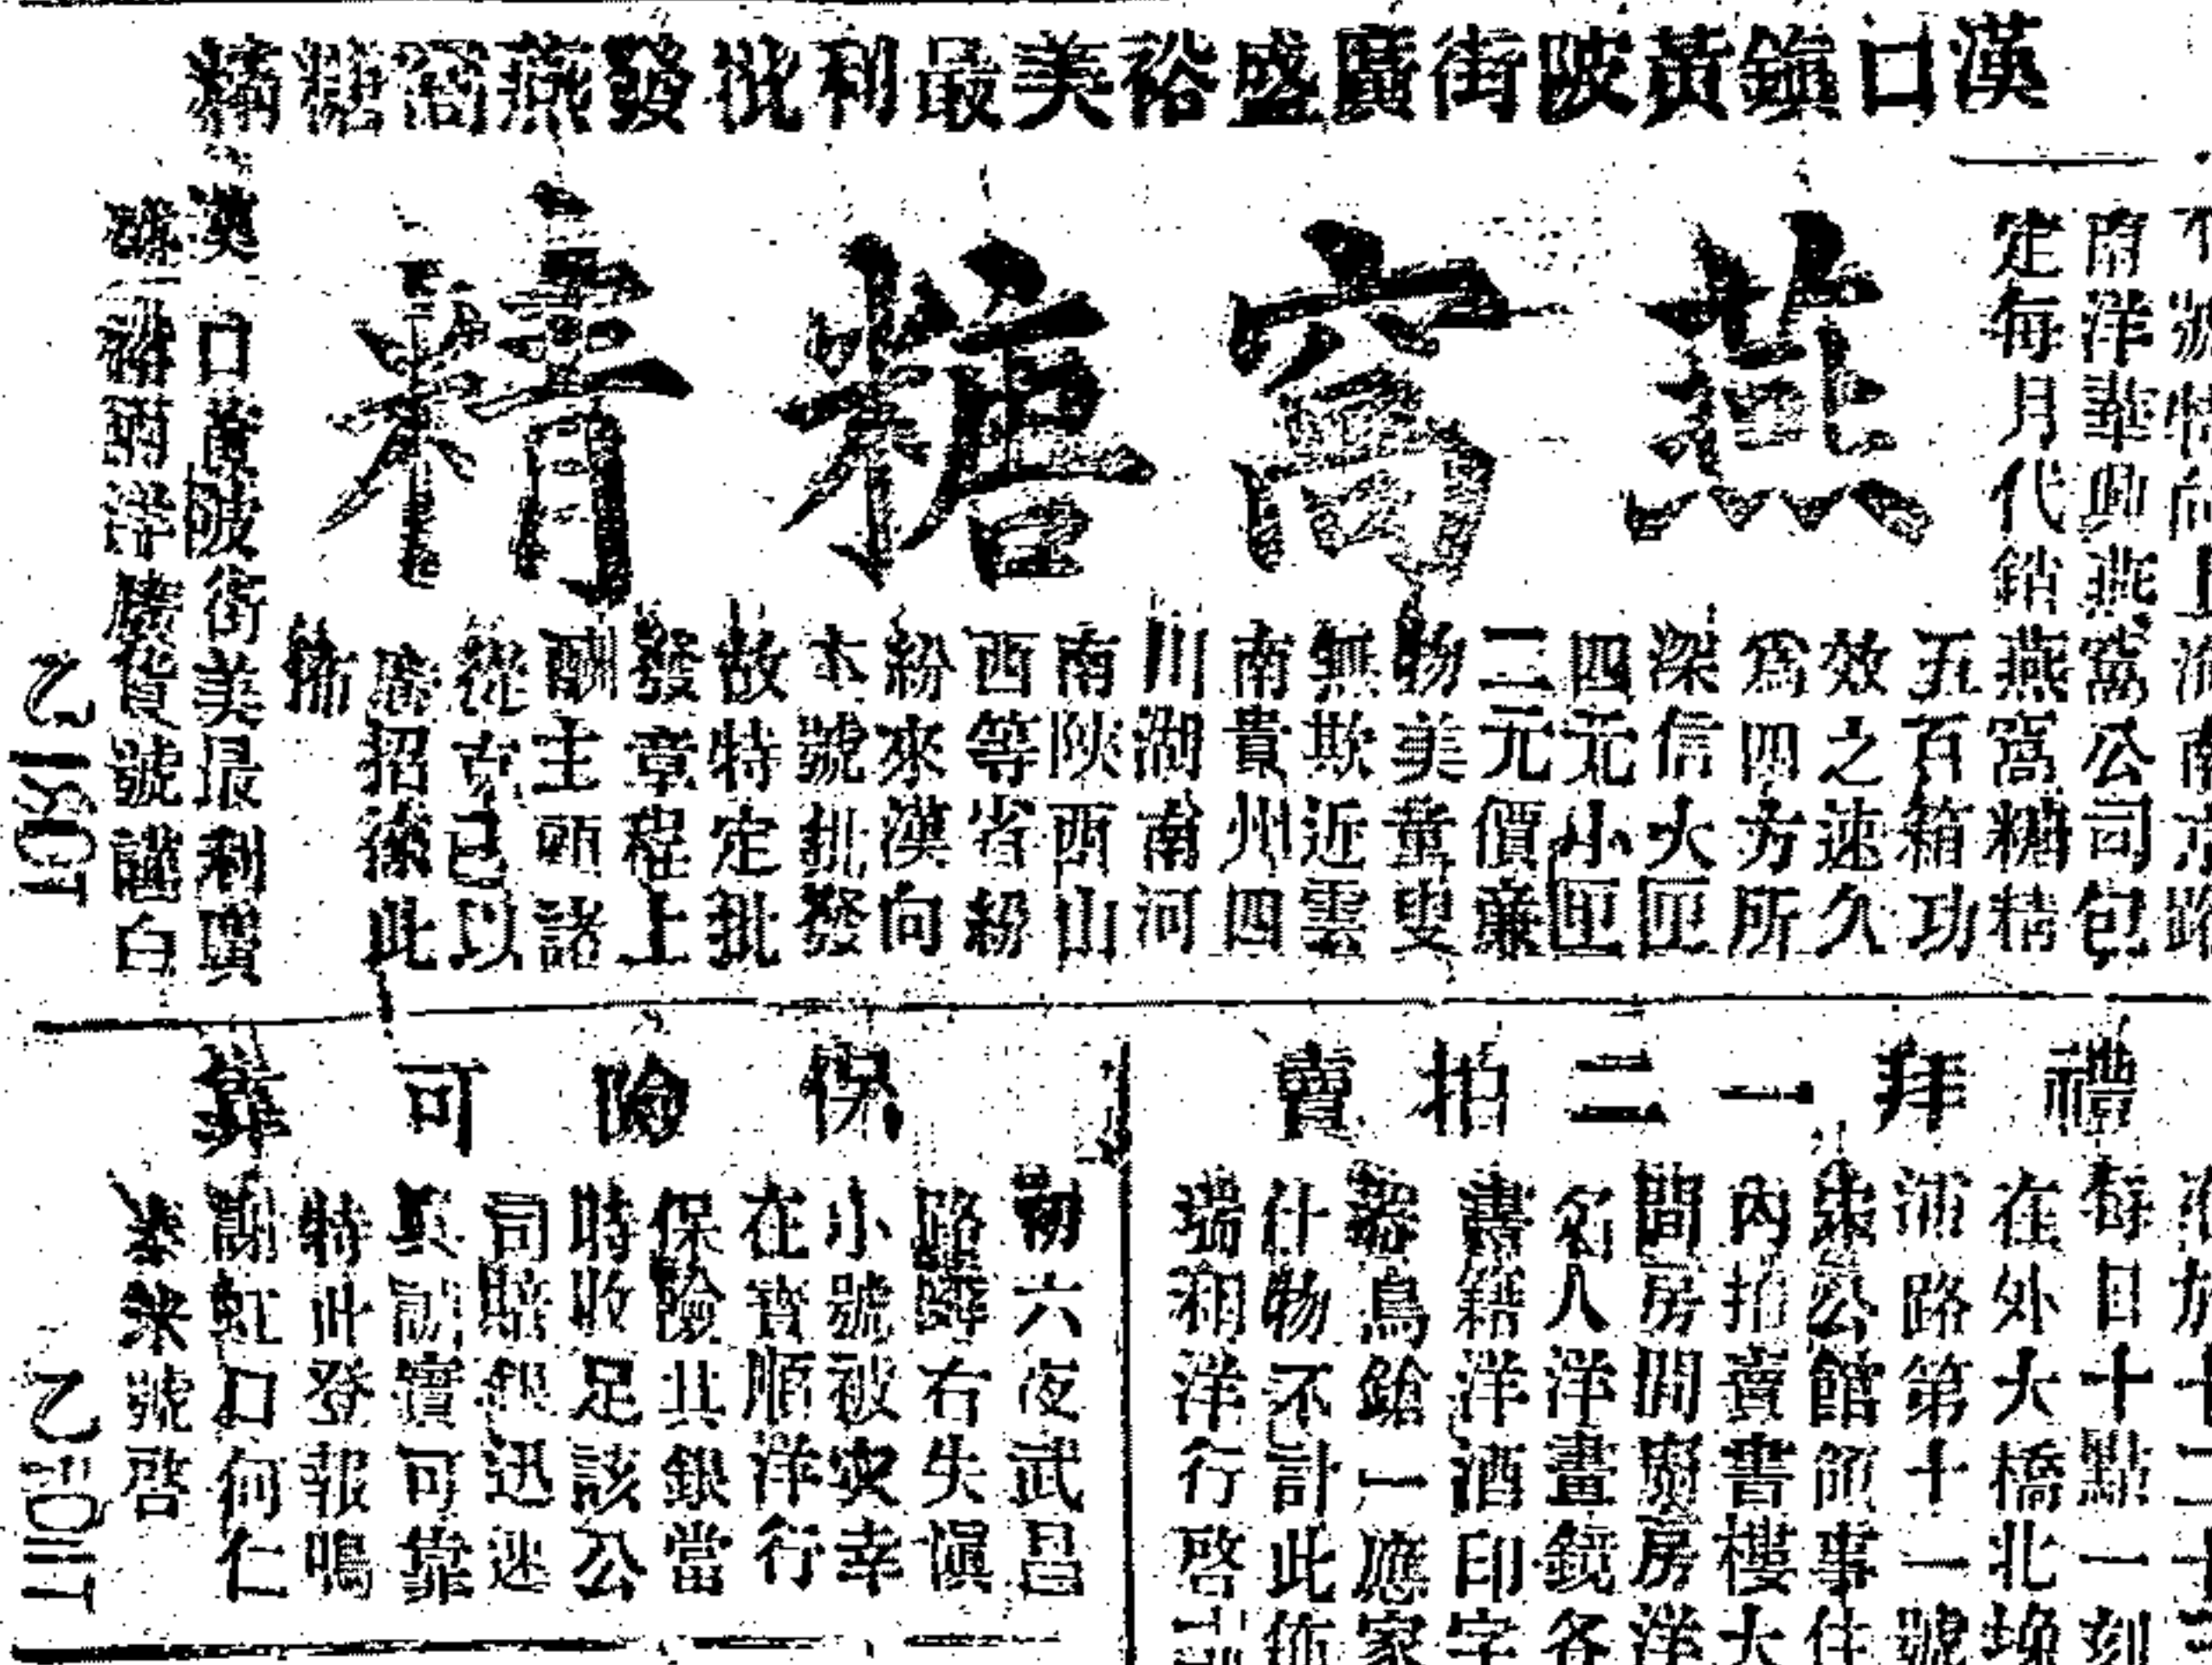 漢口鎮黃陂街廣盛裕美最利批發燕窩糖精
燕窩糖精
南洋華興燕窩公司包
定每月代銷燕窩糖精
五百箱功
效之速久
為四方所
深信大匣
四元小匣
二元價廉
物美童叟
無欺近雲
南貴州四
川湖南河
南陝西山
西等省紛
紛來漢向
本號批發
故特定批
發章程上
酬主顧諸
從克己以
廣招徠此
佈
漢口黃陂街美最利廣
盛裕兩洋廣貨號謹白
禮拜一二拍賣
每日十點一刻
在外大橋北堍
浦路第十一號
朱公館領事住
內拍賣書樓大
間房間廚房洋
名人洋畫鏡各
書籍洋酒印字
器鳥鎗一應家
什物不計此佈
瑞和洋行啓
保險可靠
初六夜武昌
路歸右失慎
小號被災幸
在寶順洋行
保險其銀當
時收足該公
司賠銀迅速
真誠實可靠
特此登報鳴
謝虹口何仁
泰號啓